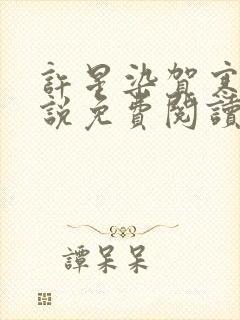 許星染賀寒
說免費閱讀
譚呆呆